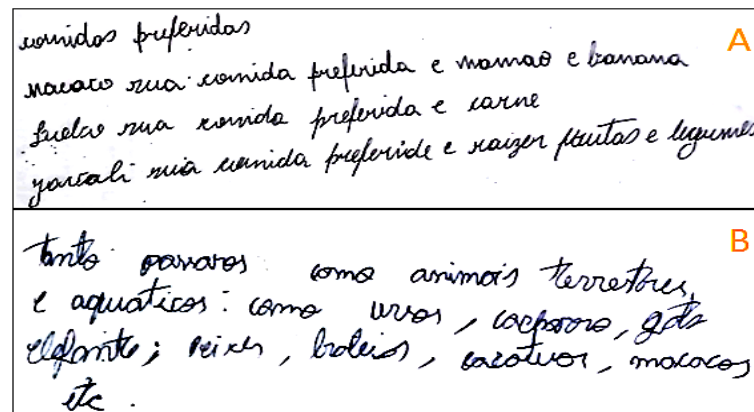 comidas preferidas
A
macaco sua comida preferida e mamao e banana
sua comida preferida e carne
sua comida preferide e raizer frutas e legumes
B
tanto como animais terrestres,
e aquaticos: como ursos, gato
elefante; peixes, macacos
etc.